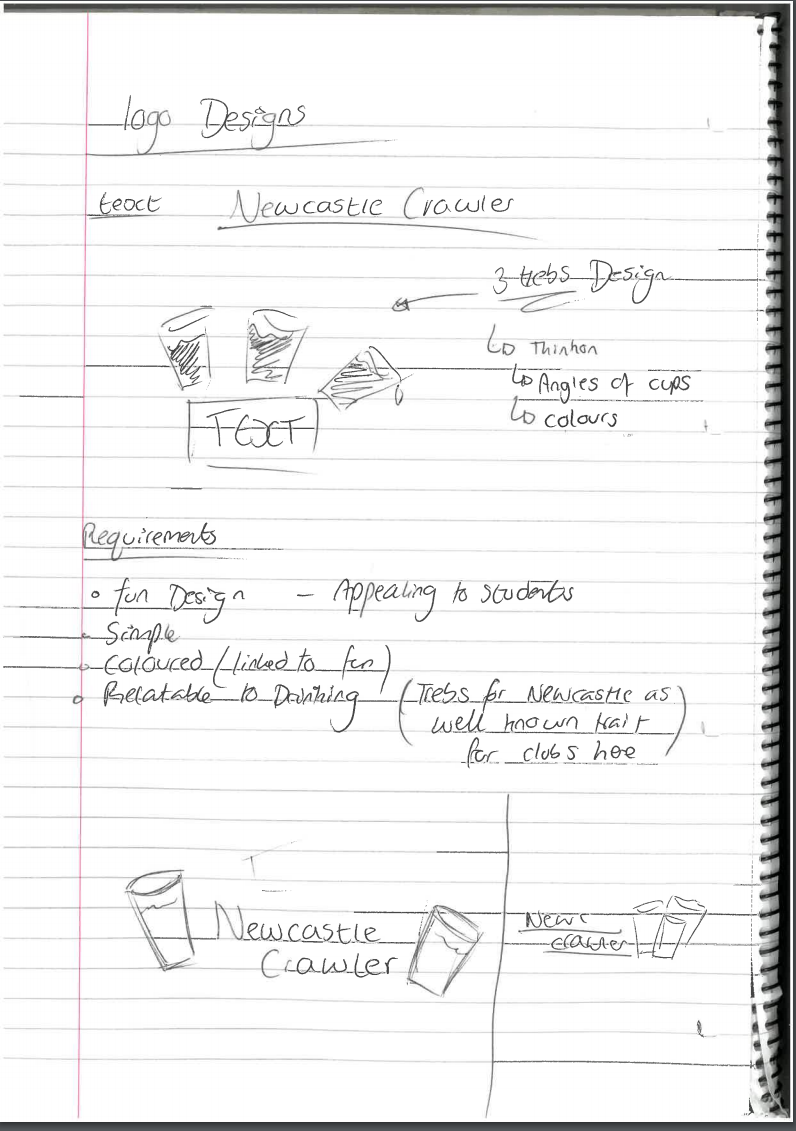 logo Designs
text Newcastle Crawler
3 trebs Design
Angles of cups
colours
TEXT
Requirements
fun Design - Appealing to students
Simple
Coloured (linked to fun)
Relatable to Drinking (Trebs for Newcastle as
well known trait
for clubs here
Newcastle
Crawler
Newc
crawler